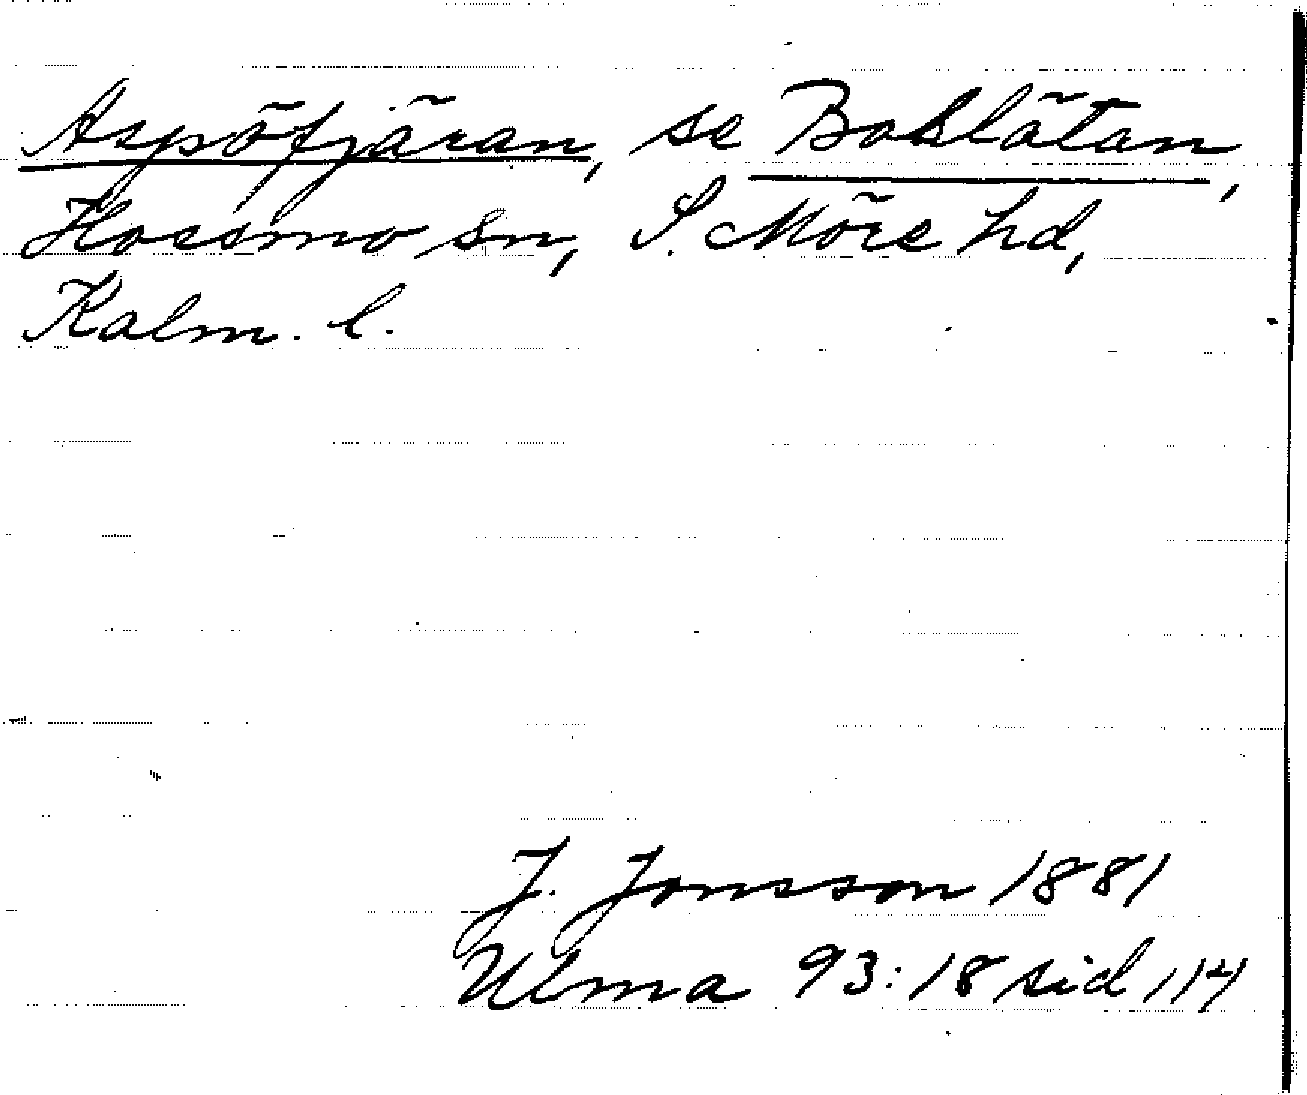 Aspöfjäran, se Boklätan,
Hossmo sn, S. Möre hd,
Kalm. l.
J. Jonsson 1881
Ulma 93:18 sid 114